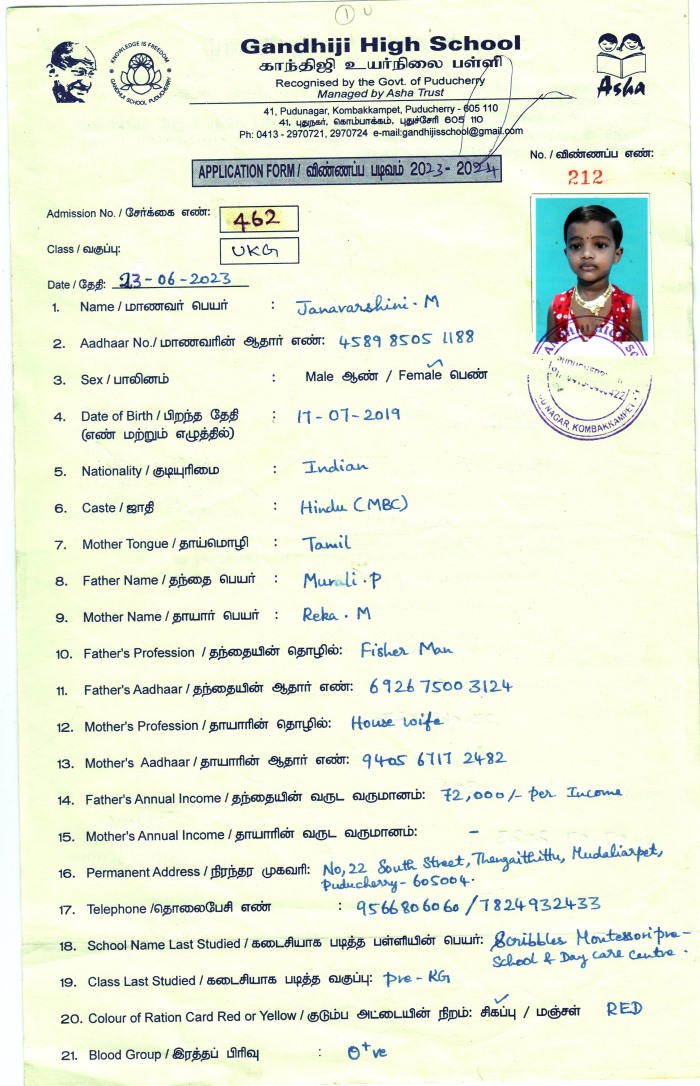 1
KNOWLEDGE IS FREEDOM
GANDHIJI SCHOOL PUDUCHERRY
Gandhiji High School
காந்திஜி உயர்நிலை பள்ளி
Recognised by the Govt. of Puducherry
Managed by Asha Trust
Asha
41, Pudunagar, Kombakkampet, Puducherry - 605 110
41, புதுநகர், கொம்பாக்கம், புதுச்சேரி 605 110
Ph: 0413 - 2970721, 2970724 e-mail:gandhijisschool@gmail.com
APPLICATION FORM / விண்ணப்ப படிவம் 2023 - 2024
No. / விண்ணப்ப எண்:
212
Admission No. / சேர்க்கை எண்: 462
Class / வகுப்பு: UKG
Date / தேதி: 23-06-2023
1. Name / மாணவர் பெயர் : Janavarshini. M
2. Aadhaar No./ மாணவரின் ஆதார் எண்: 4589 8505 1188
3. Sex / பாலினம் : Male ஆண் / Female பெண்
4. Date of Birth / பிறந்த தேதி : 17-07-2019
(எண் மற்றும் எழுத்தில்)
NAGAR, KOMBAKKAMPET
5. Nationality / குடியுரிமை : Indian
6. Caste / ஜாதி : Hindu (MBC)
7. Mother Tongue / தாய்மொழி : Tamil
8. Father Name / தந்தை பெயர் : Murali. P
9. Mother Name / தாயார் பெயர் : Reka. M
10. Father's Profession / தந்தையின் தொழில்: Fisher Man
11. Father's Aadhaar / தந்தையின் ஆதார் எண்: 6926 7500 3124
12. Mother's Profession / தாயாரின் தொழில்: House wife
13. Mother's Aadhaar / தாயாரின் ஆதார் எண்: 9405 6717 2482
14. Father's Annual Income / தந்தையின் வருட வருமானம்: 72,000/- per Income
15. Mother's Annual Income / தாயாரின் வருட வருமானம்: -
16. Permanent Address / நிரந்தர முகவரி: No, 22 South Street, Thengaithittu, Mudaliarpet,
Puducherry - 605004.
17. Telephone /தொலைபேசி எண் : 9566806060 / 7824932433
18. School Name Last Studied / கடைசியாக படித்த பள்ளியின் பெயர்: Scribbles Montessori pre-
School & Day care Centre.
19. Class Last Studied / கடைசியாக படித்த வகுப்பு: Pre-KG
20. Colour of Ration Card Red or Yellow / குடும்ப அட்டையின் நிறம்: சிகப்பு / மஞ்சள் RED
21. Blood Group / இரத்தப் பிரிவு : O+ve